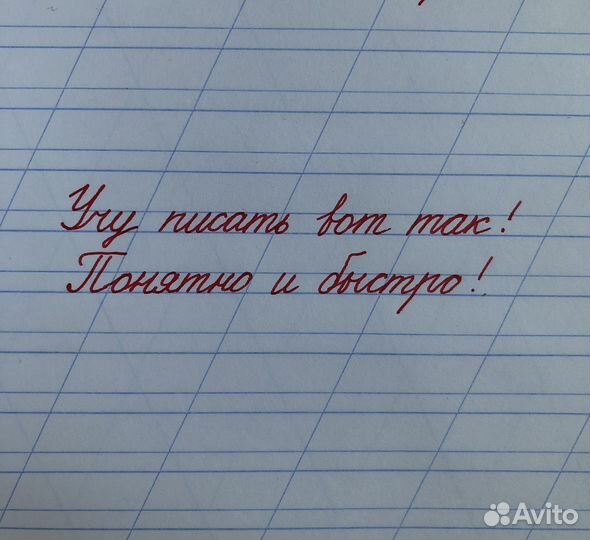 Учу писать вот так!
Понятно и быстро!
Avito